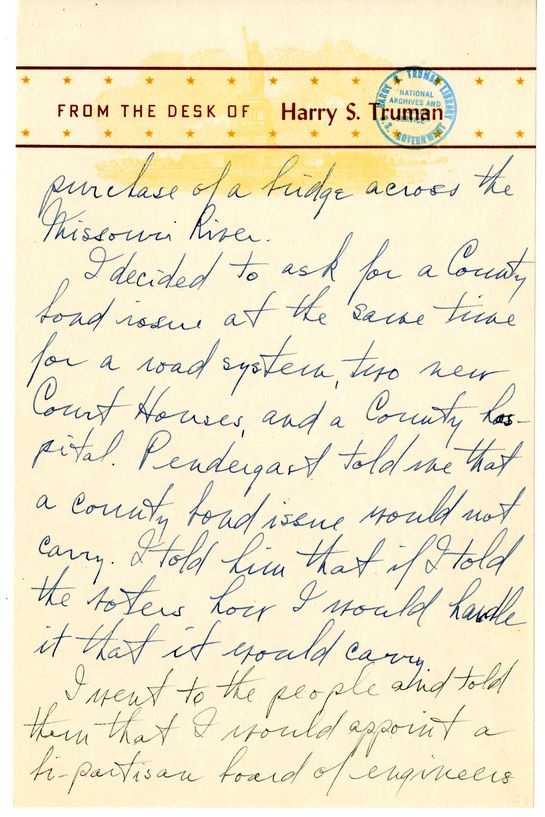 FROM THE DESK OF Harry S. Truman
HARRY S. TRUMAN LIBRARY
NATIONAL
ARCHIVES AND
SERVICE
U.S. GOVERNMENT
purchase of a bridge across the
Missouri River.
I decided to ask for a County
bond issue at the same time
for a road system, two new
Court Houses, and a County hos-
pital. Pendergast told me that
a county bond issue would not
carry. I told him that if I told
the voters how I would handle
it that it would carry.
I went to the people and told
them that I would appoint a
bi-partisan board of engineers